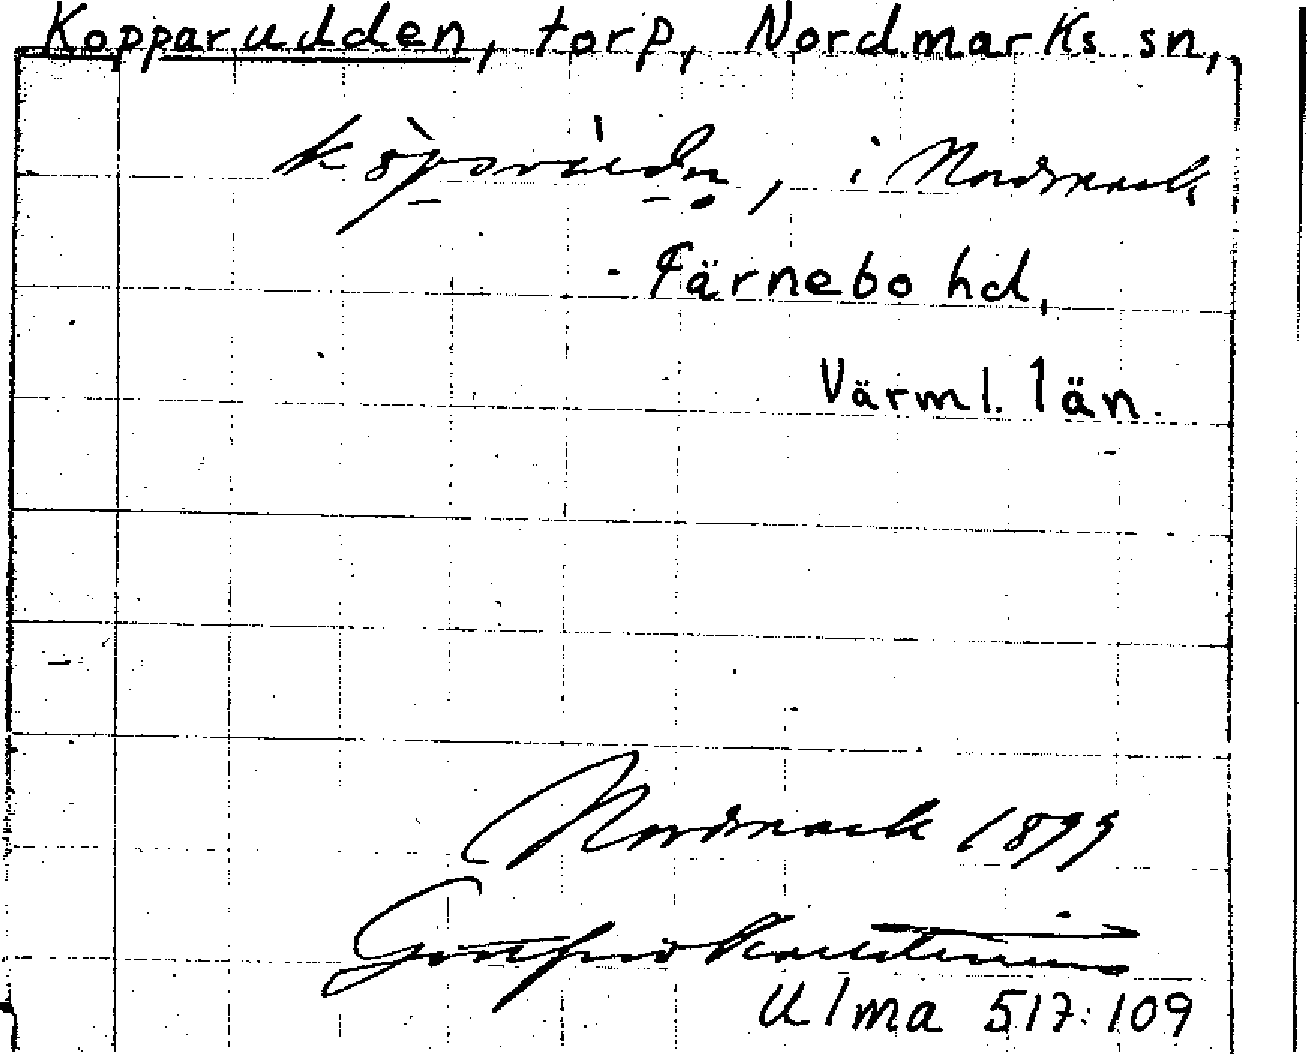 Kopparudden, torp, Nordmarks sn,
i Nordmark
Färnebo hd,
Värml. län.
Nordmark 1899
Gottfrid Kallstenius
Ulma 517:109